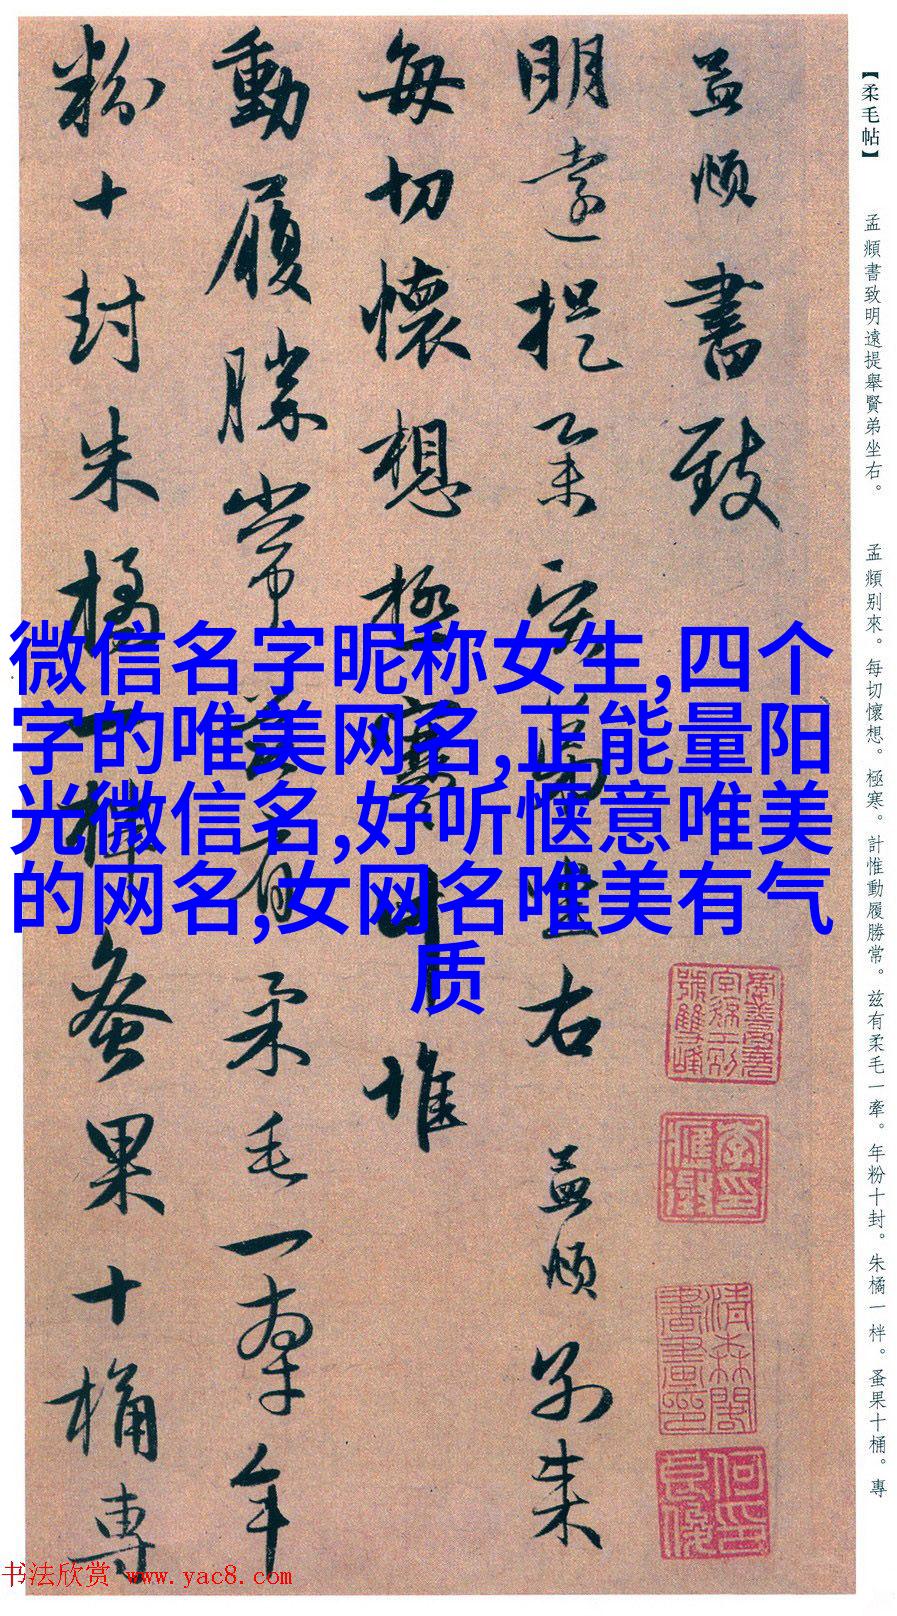 【柔毛帖】
孟頫書致明遠提舉賢弟坐右。
孟頫别來。每切懷想。極寒。計惟動履勝常。兹有柔毛一牽。年粉十封。朱橘一柈。蚤果十桶。專
孟頫書致
明遠提舉賢弟坐右孟頫别來
每切懷想極寒計惟
動履勝常兹有柔毛一牽年
粉十封朱橘一柈蚤果十桶專
微信名字昵称女生,四个
字的唯美网名,正能量阳
光微信名,好听惬意唯美
的网名,女网名唯美有气
质
书法欣赏 www.yac8.com